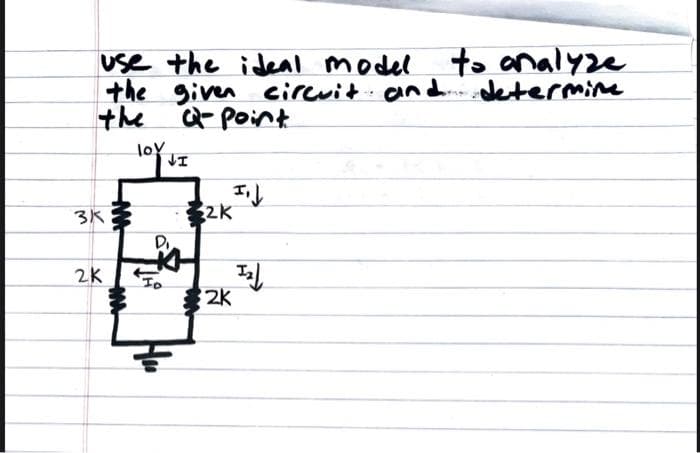 use the ideal model to analyze
the given circuit and determine
the Q-point
10V ↓I
I₁↓
3K
2K
D₁
2K
I₂↓
←
I_D
2K